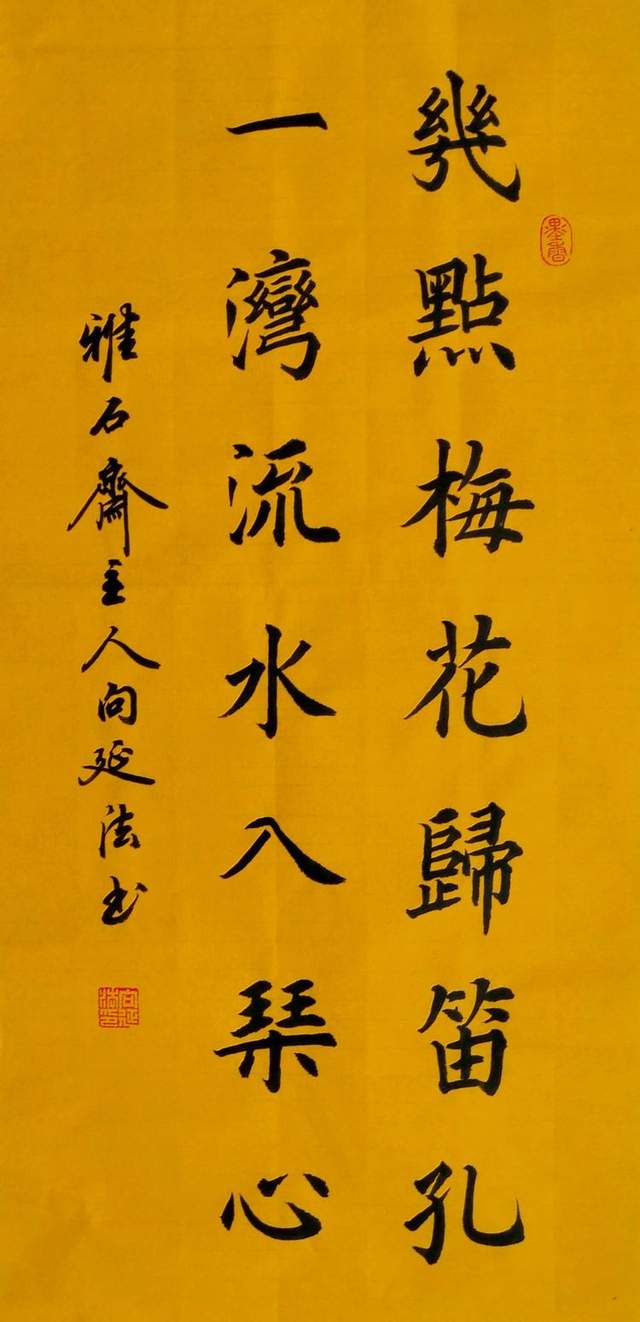 幾點梅花歸笛孔
一灣流水入琹心
雅石齋主人向延法书
墨香
向延法印